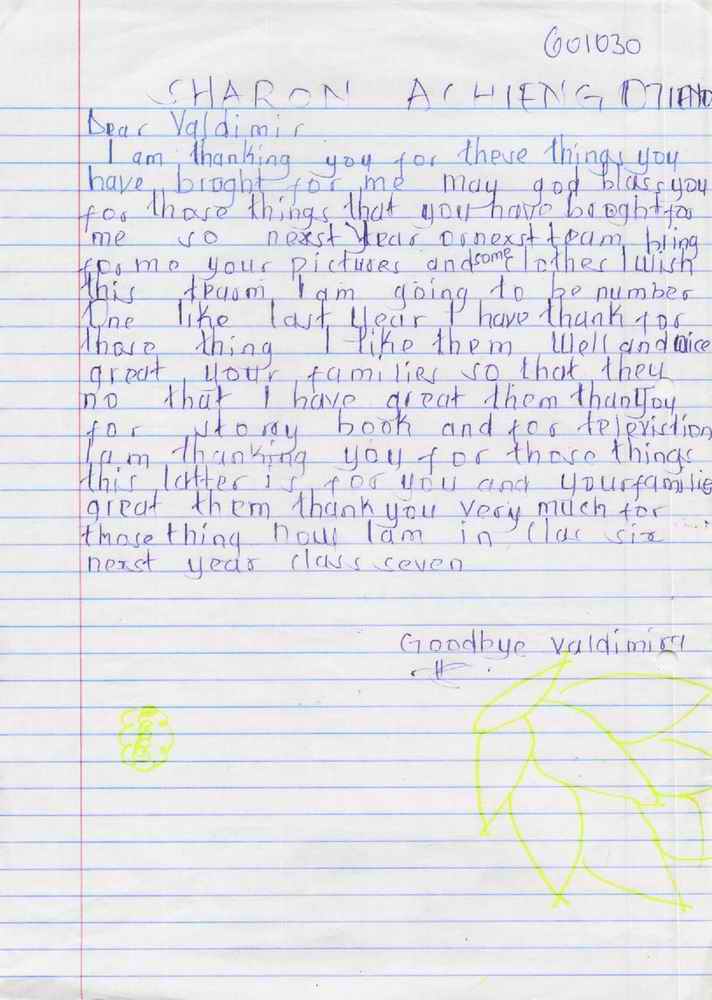 601030
SHARON ACHIENG OTIENO
Dear Valdimir
I am thanking you for these things you
have broght for me may god blass you
for those things that you have booght for
me so nexst year or nexst team bring
for me your pictures and some clothes I wish
this team I am going to be number
One like last year I have thank for
those thing I like them well and nice
great your families so that they
no that I have great them thank you
for storay book and for
I am thanking you for those things
this latter is for you and your families
great them thank you very much for
those thing now I am in clas six
nexst year class seven
Goodbye Valdimir